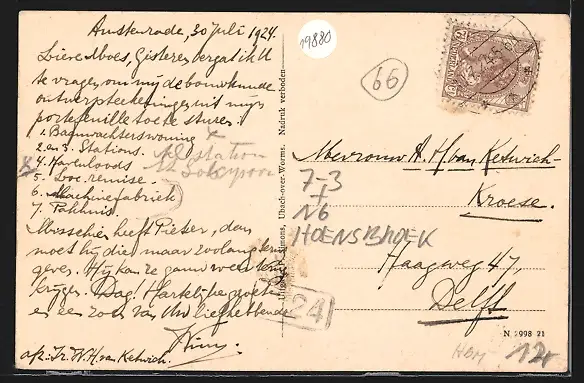 Amstenrade, 30 Juli 1924.
Lieve Moes, Gisteren vergat ik U
te vragen om mij de bouwkunde
ontwerpteekeningen uit mijn
portefeuille toe te sturen:
1. Baanwachterswoning
2. en 3. Stations.
4. Havenloods
5. Loc. remise.
6. Machinefabriek
7. Pakhuis.
Misschien heeft Pieter, dan
moet hij die maar zoolang terug
geven. Hij kan ze gauw weer terug
krijgen. Dag! Hartelijke groeten
en een zoen van Uw liefhebbende
Wim.
a/z: Ir. W.H. van Ketwich.
Station
19880
66
Mevrouw A. H. van Ketwich-
Kroese.
Haagweg 47,
Delft
7-3
+
N6
HOENSBROEK
24
Simons, Ubach-over-Worms. Nadruk verboden
N 2998 21
12,-